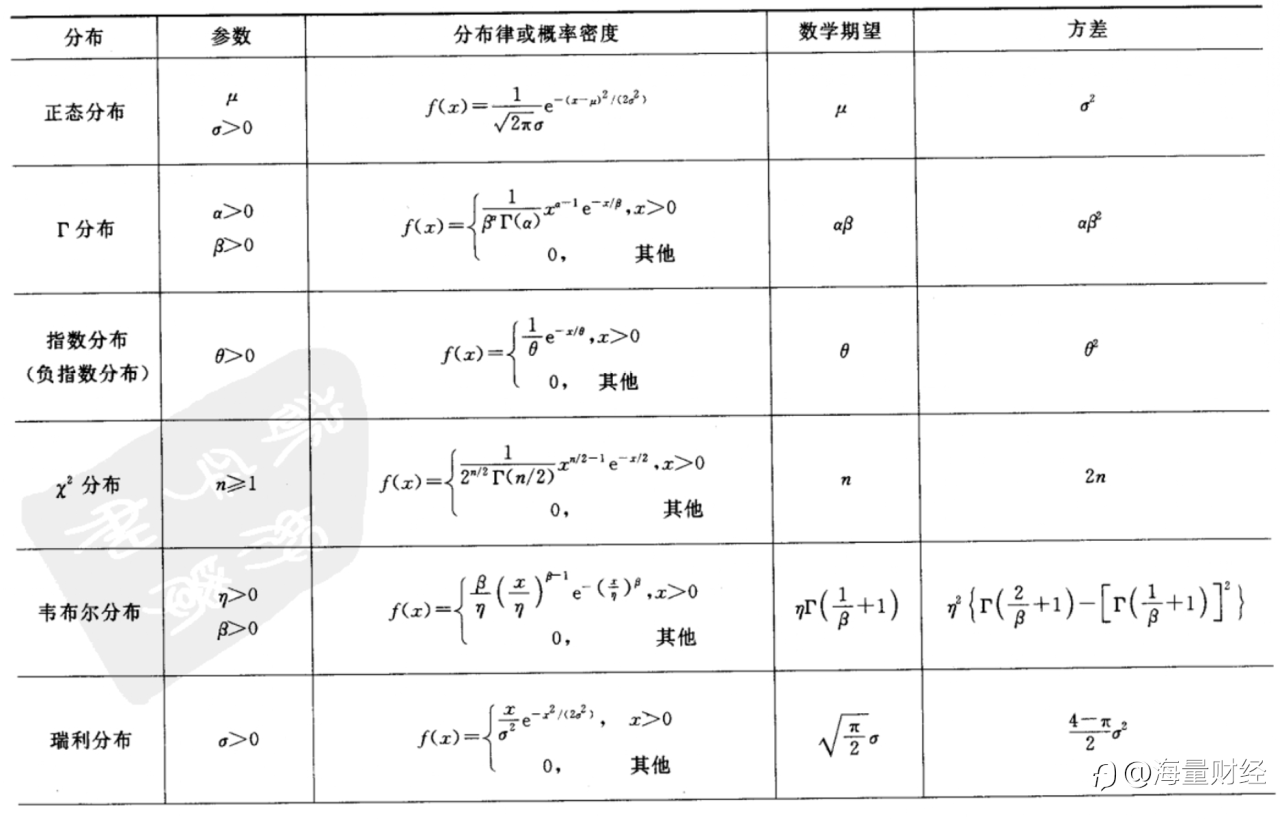 分布 参数 分布律或概率密度 数学期望 方差
正态分布 μ σ>0 f(x)=\frac{1}{\sqrt{2π}σ}e^{-(x-μ)^2/(2σ^2)} μ σ^2
Γ分布 α>0 β>0 f(x)=\begin{cases}\frac{1}{β^αΓ(α)}x^{α-1}e^{-x/β},x>0\\0, 其他\end{cases} αβ αβ^2
指数分布
(负指数分布) θ>0 f(x)=\begin{cases}\frac{1}{θ}e^{-x/θ},x>0\\0, 其他\end{cases} θ θ^2
χ^2分布 n⩾1 f(x)=\begin{cases}\frac{1}{2^{n/2}Γ(n/2)}x^{n/2-1}e^{-x/2},x>0\\0, 其他\end{cases} n 2n
韦布尔分布 η>0 β>0 f(x)=\begin{cases}\frac{β}{η}(\frac{x}{η})^{β-1}e^{-(\frac{x}{η})^β},x>0\\0, 其他\end{cases} ηΓ(\frac{1}{β}+1) η^2{Γ(\frac{2}{β}+1)-[Γ(\frac{1}{β}+1)]^2}
瑞利分布 σ>0 f(x)=\begin{cases}\frac{x}{σ^2}e^{-x^2/(2σ^2)}, x>0\\0, 其他\end{cases} \sqrt{\frac{π}{2}}σ \frac{4-π}{2}σ^2
@海量财经